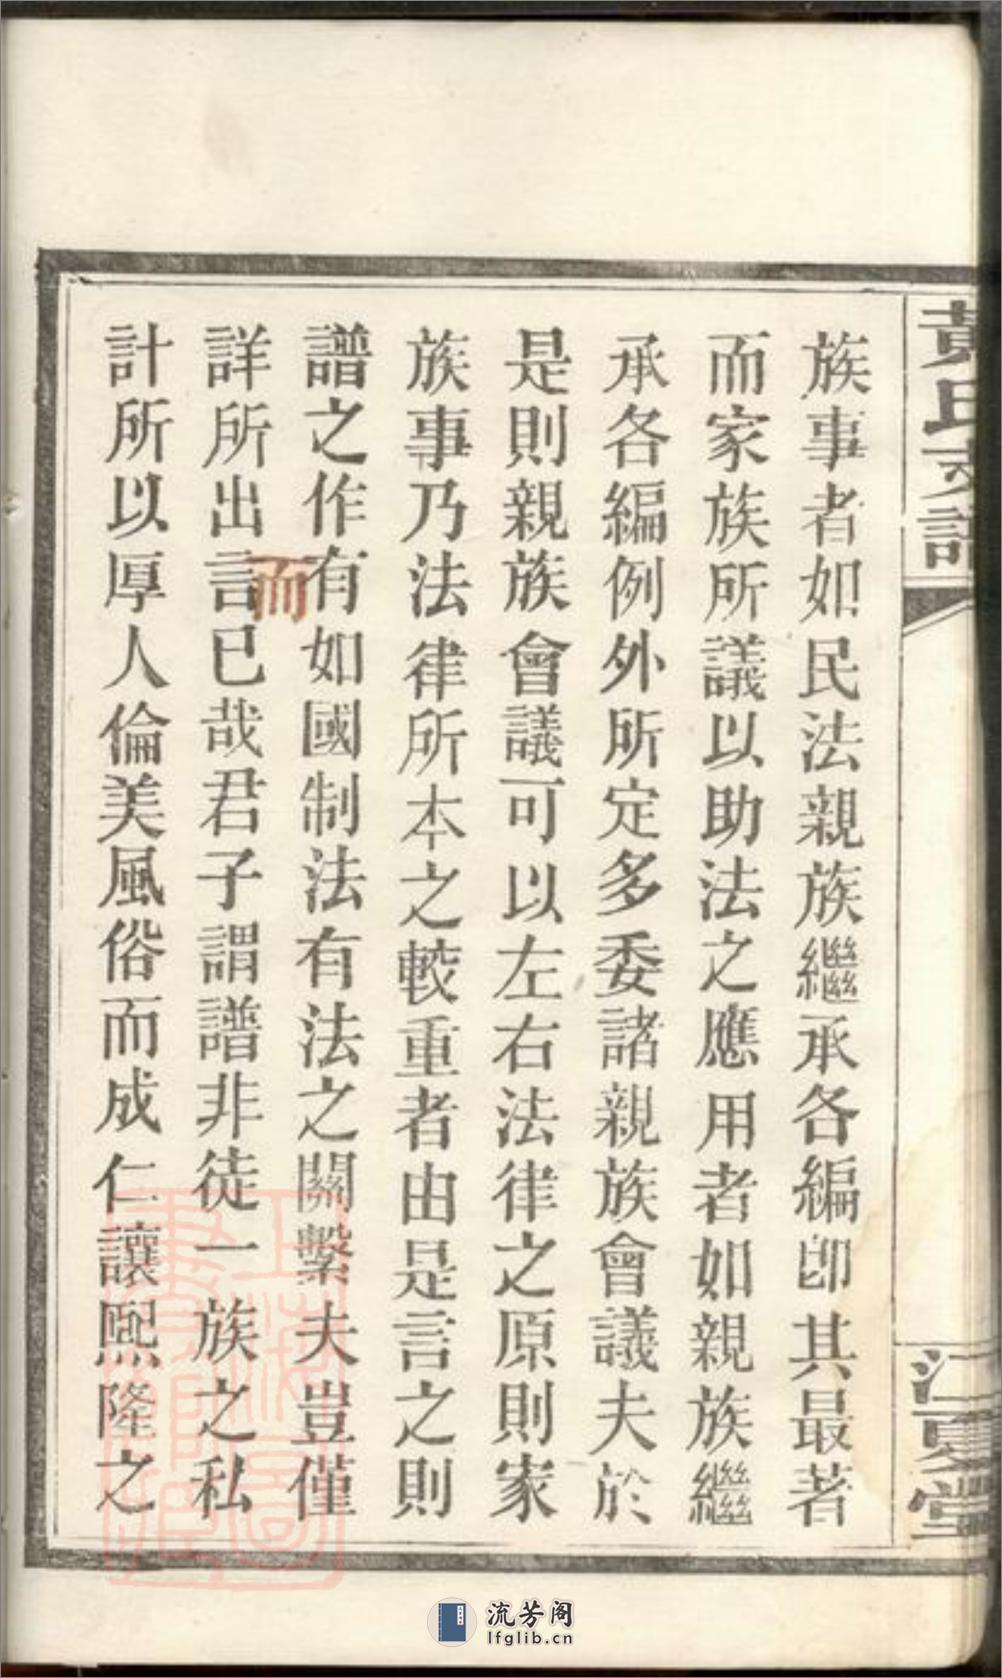 黃氏支譜
江夏堂
族事者如民法親族繼承各編卽其最著
而家族所議以助法之應用者如親族繼
承各編例外所定多委諸親族會議夫於
是則親族會議可以左右法律之原則家
族事乃法律所本之較重者由是言之則
譜之作有如國制法有法之關繫夫豈僅
詳所出言已哉君子謂譜非徒一族之私
而
計所以厚人倫美風俗而成仁讓熙隆之
上海圖書館藏
流芳阁
lfglib.cn